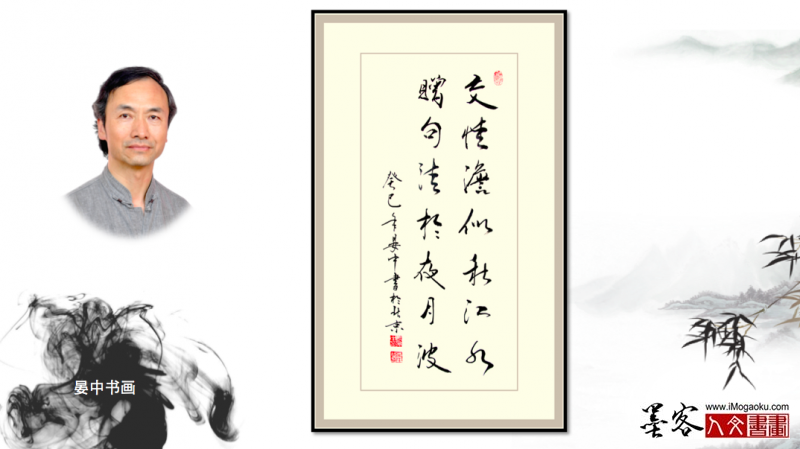 交情澹似秋江水
贈句清於夜月波
癸巳年晏中書於北京
晏中书画
墨客
www.iMogaoku.com
人文書畫